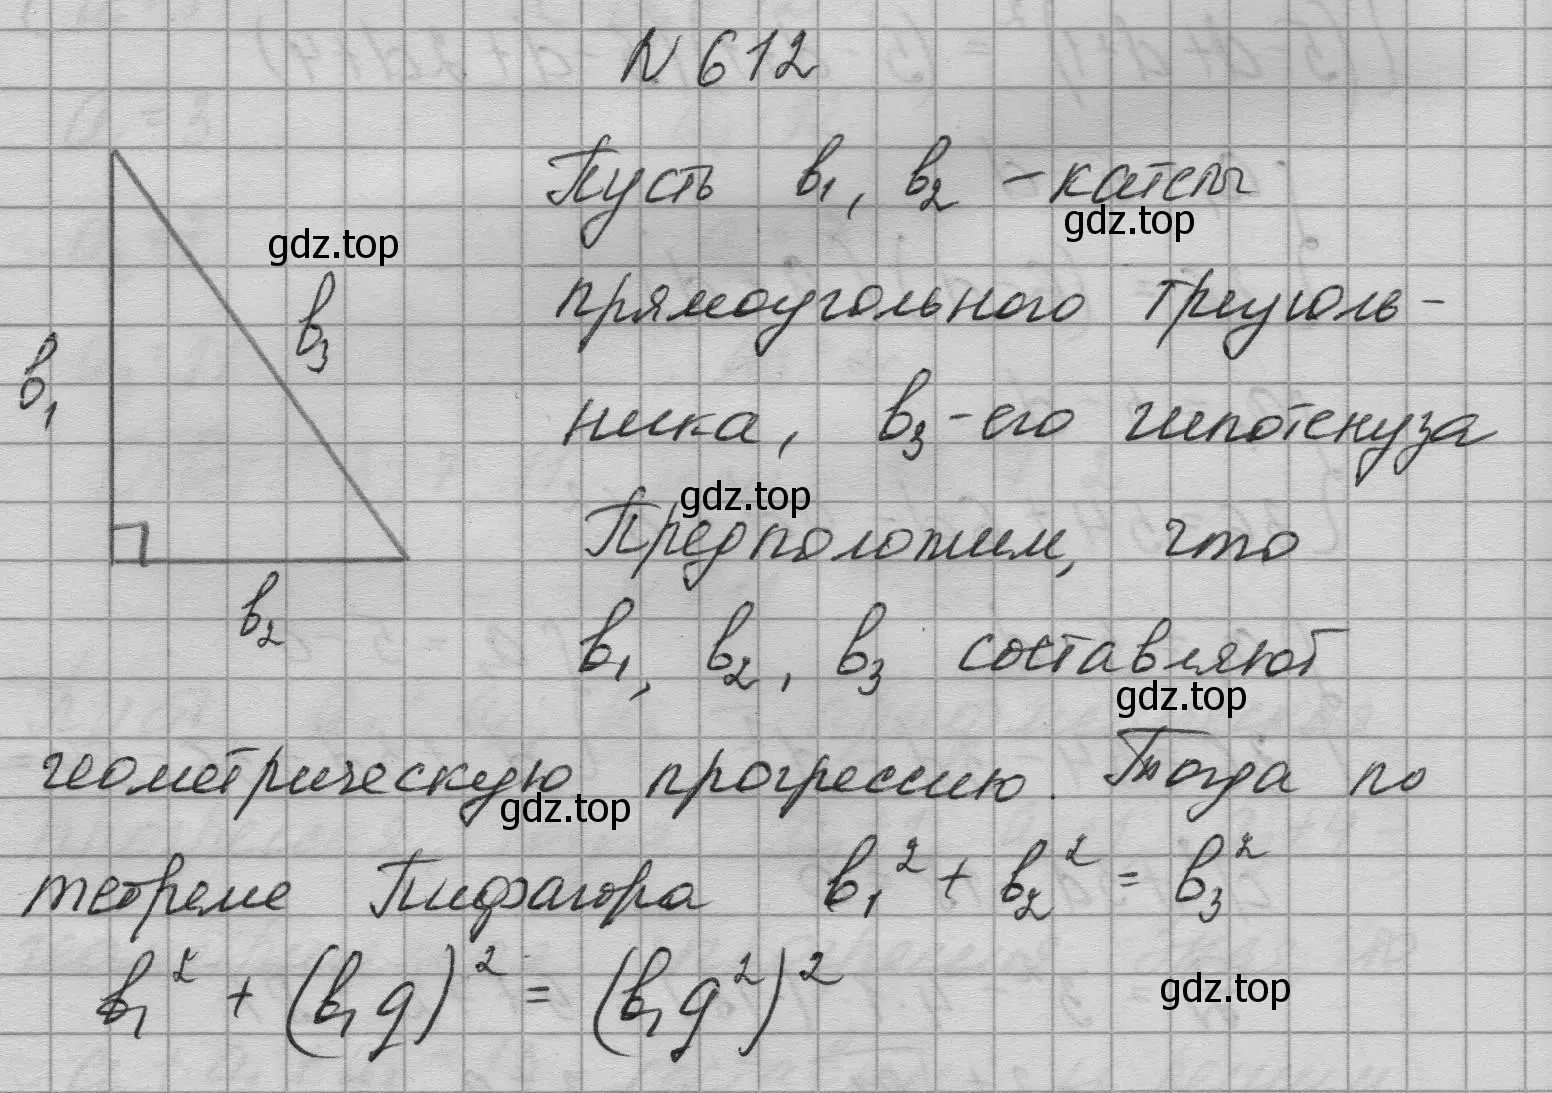 N 612
Пусть b₁, b₂ - катеты
gdz.top
gdz.top
b₃
прямоугольного треуголь-
b₁
ника, b₃ - его гипотенуза
gdz.top
Предположим, что
b₂
b₁, b₂, b₃ составляют
gdz.top
геометрическую прогрессию. Тогда по
gdz.top
теореме Пифагора b₁² + b₂² = b₃²
b₁² + (b₁q)² = (b₁q²)²
gdz.top